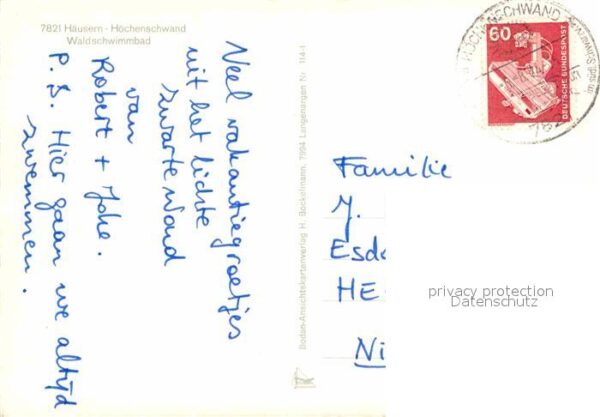 7821 Häusern - Höchenschwand
Waldschwimmbad
Veel vakantiegroetjes
uit het lichte
zwarte Woud
van
Robert + Joke.
P.S. Hier gaan we altijd
zwemmen.
Bodan-Ansichtskartenverlag H. Bockelmann, 7994 Langenargen Nr. 1144-1
HÖCHENSCHWAND
60
DEUTSCHE BUNDESPOST
Familie
J.
Esd
HE
Ni
privacy protection
Datenschutz